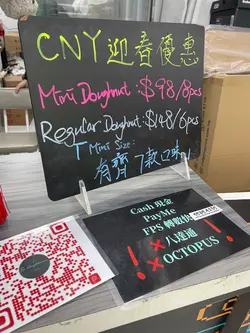 CNY 迎春優惠
Mini Doughnut: $98/8pcs
Regular Doughnut: $148/6pcs
Mini Size:
有齊7款口味
Cash 現金
PayMe
FPS 轉數快
八達通
OCTOPUS